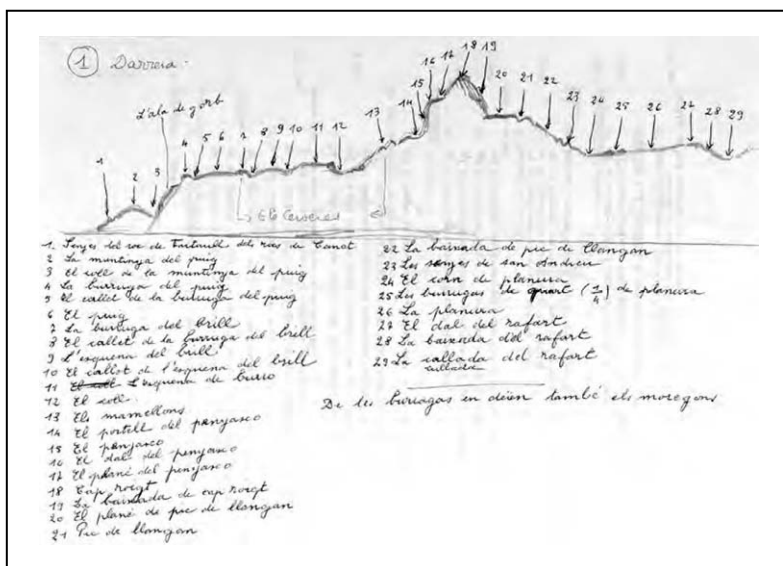 1 Darrera.
L'ala de gorb
1 2 3 4 5 6 7 8 9 10 11 12 13 14 15 16 17 18 19 20 21 22 23 24 25 26 27 28 29
Cerveres
1. Senjes del roc de dels ras de Canot
2 La muntinya del puig
3 El coll de la muntinya del puig
4 La burruga del puig
5 El collet de la burruga del puig
6 El puig
7 La burruga del brill
8 El collet de la burruga del brill
9 L'esquena del brill
10 El collet de l'esquena del brill
11 L'esquena de burro
12 El coll.
13 Els mamellons
14 El portell del penyasco
15 El penyasco
16 El dal del penyasco
17 El plané del penyasco
18 Cap roigt
19 La baixada de cap roigt
20 El plané de pic de llangan
21 Pic de llangan
22 La baixada de pic de llangan
23 Les senjes de san Andreu
24 El corn de planura
25 Les burrugas de quart (1/4) de planura
26 La planura
27 El dal del rafart
28 La baixada del rafart
29 La collada del rafart
De les burrugas en déien també els moregons